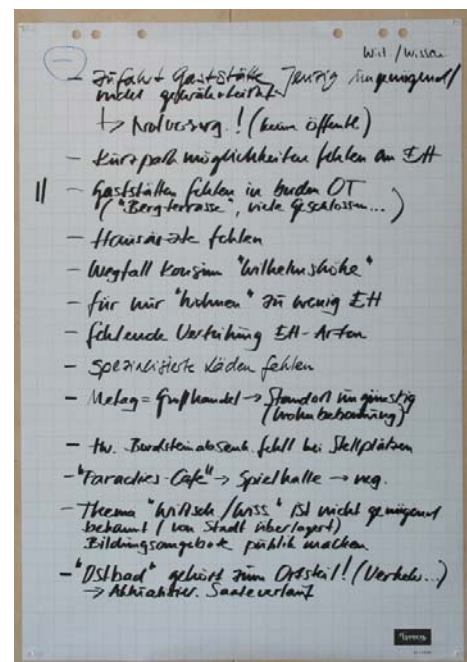 Wirt./Wissen
- Zufahrt Gaststätte Jenzig ungenügend/
nicht gewährleistet
↳ Notversorg.! (keine öffentl.)
- Kurzparkmöglichkeiten fehlen am EH
|| - Gaststätten fehlen in beiden OT
("Bergterrasse", viele geschlossen...)
- Hausärzte fehlen
- Wegfall Konsum "Wilhelmshöhe"
- für nur "Wohnen" zu wenig EH
- fehlende Verteilung EH-Arten
- Spezialisierte Läden fehlen
- Metag = Großhandel → Standort ungünstig
(Wohnbebauung)
- tw. Bordsteinabsenk. fehlt bei Stellplätzen
- "Paradies-Cafe" → Spielhalle → neg.
- Thema "Wirtsch/Wiss" ist nicht genügend
bekannt (von Stadt überlagert)
Bildungsangebote publik machen
- "Ostbad" gehört zum Ortsteil! (Verkehr...)
→ Saaleverlauf